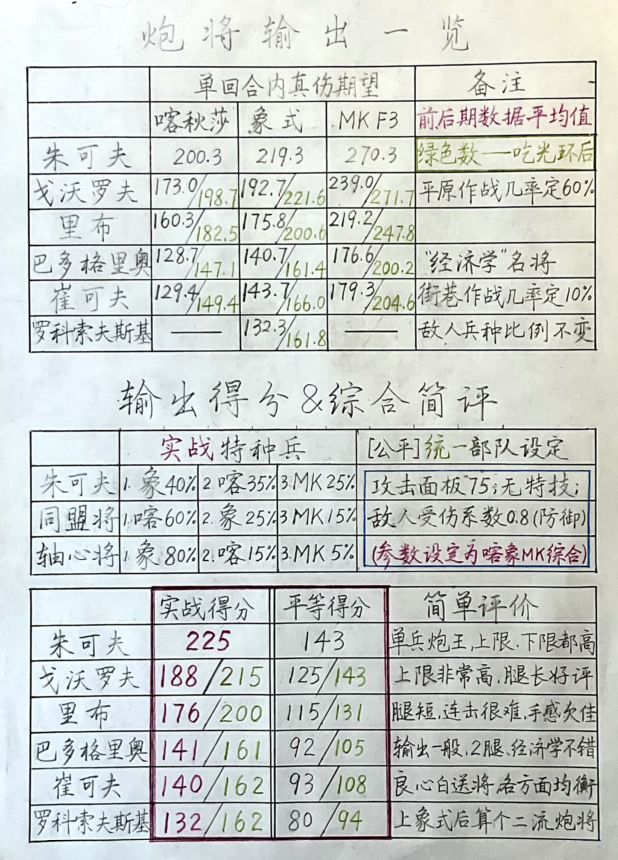 炮将输出一览
单回合内真伤期望 备注
喀秋莎 象式 MK F3 前后期数据平均值
朱可夫 200.3 219.3 270.3 绿色数——吃光环后
戈沃罗夫 173.0/198.7 192.7/221.6 239.0/271.7 平原作战几率定60%
里布 160.3/182.5 175.8/200.6 219.2/247.8
巴多格里奥 128.7/147.1 140.7/161.4 176.6/200.2 “经济学”名将
崔可夫 129.4/149.4 143.7/166.0 179.3/204.6 街巷作战几率定10%
罗科索夫斯基 —— 132.3/161.8 —— 敌人兵种比例不变
输出得分&综合简评
实战特种兵 [公平]统一部队设定
朱可夫 1.象40% 2.喀35% 3.MK25% 攻击面板75;无特技;
同盟将 1.喀60% 2.象25% 3.MK15% 敌人受伤系数0.8(防御)
轴心将 1.象80% 2.喀15% 3.MK5% (参数设定为喀象MK综合)
实战得分 平等得分 简单评价
朱可夫 225 143 单兵炮王,上限、下限都高
戈沃罗夫 188/215 125/143 上限非常高,腿长好评
里布 176/200 115/131 腿短,连击很难,手感欠佳
巴多格里奥 141/161 92/105 输出一般,2腿、经济学不错
崔可夫 140/162 93/108 良心白送将,各方面均衡
罗科索夫斯基 132/162 80/94 上象式后算个二流炮将